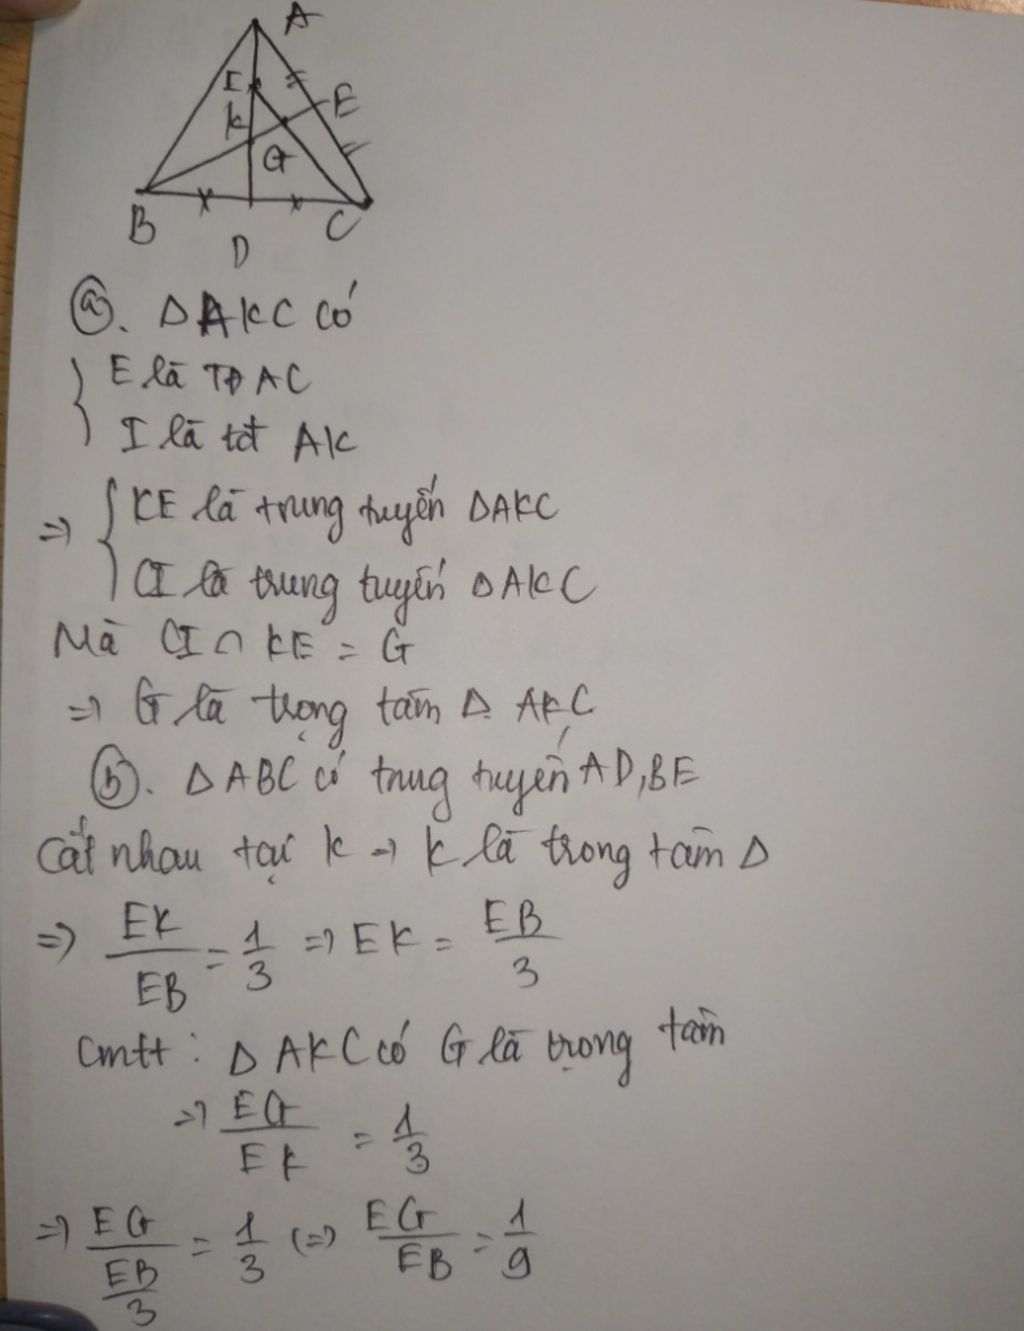 A
I
K
E
G
B
C
D
a. Δ AKC có
{ E là TĐ AC
I là tđ AK
=> { KE là trung tuyến ΔAKC
CI là trung tuyến ΔAKC
Mà CI ∩ KE = G
=> G là trọng tâm Δ AKC
b. Δ ABC có trung tuyến AD, BE
Cắt nhau tại K => K là trong tâm Δ
=> EK/EB = 1/3 => EK = EB/3
Cmtt : Δ AKC có G là trọng tâm
=> EG/EK = 1/3
=> EG/(EB/3) = 1/3 (=) EG/EB = 1/9